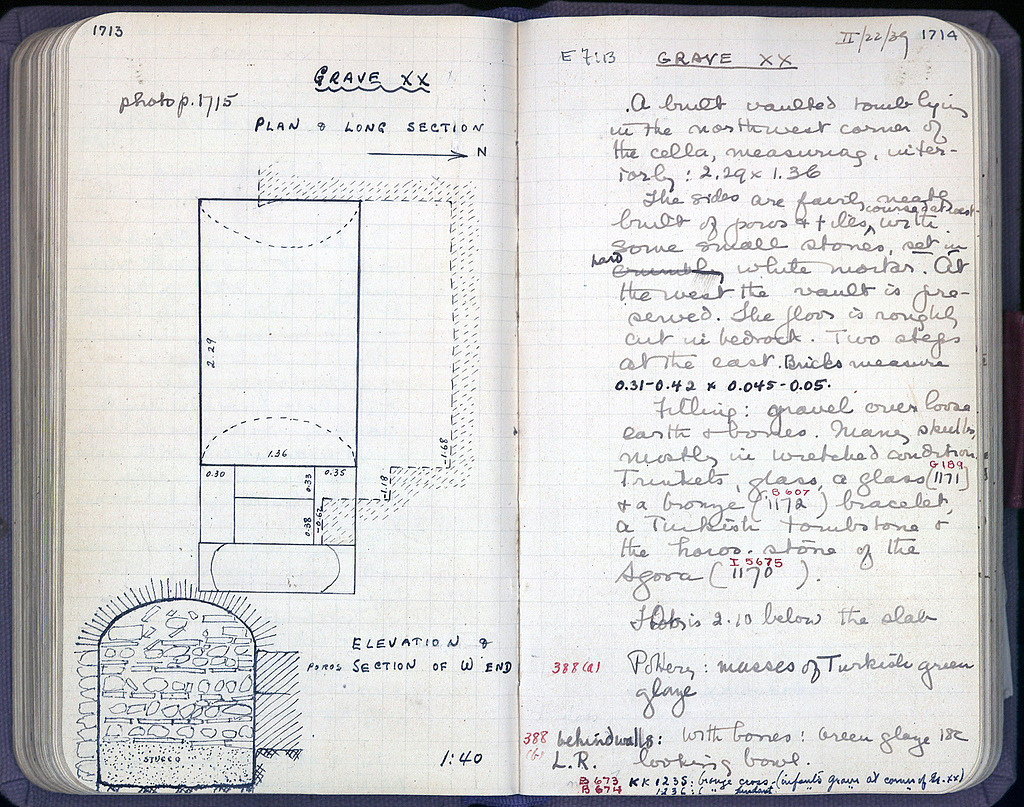 1713
GRAVE XX
photo p. 1715
PLAN & LONG SECTION
N
2.29
1.36
-1.68
0.30
0.33
0.35
-1.18
0.38
-0.62
ELEVATION &
POROS SECTION OF W END
STUCCO
1:40
II/22/39 1714
E 7:13 GRAVE XX
A built vaulted tomb lying
in the northwest corner of
the cella, measuring, inter-
iorly: 2.29 x 1.36
The sides are fairly neatly
built of poros & tiles, coursed at east with
some small stones, set in
hard crumbly white mortar. At
the west the vault is pre-
served. The floor is roughly
cut in bedrock. Two steps
at the east. Bricks measure
0.31-0.42 x 0.045-0.05.
Filling: gravel over loose
earth & bones. Many skulls,
mostly in wretched condition.
Trinkets, glass, a glass (1171) G 189
& a bronze (1172) B 607 bracelet,
a Turkish tombstone &
the horos-stone of the
Agora (1170) I 5675.
is 2.10 below the slab
388(a) Pottery: masses of Turkish green
glaze
388 (b) behind walls: With bones: Green glaze 18c
L.R. looking bowl.
B 673 KK 1235: bronze cross (infant's grave at corner of Gr. XX)
B 674 1236: " pendant "